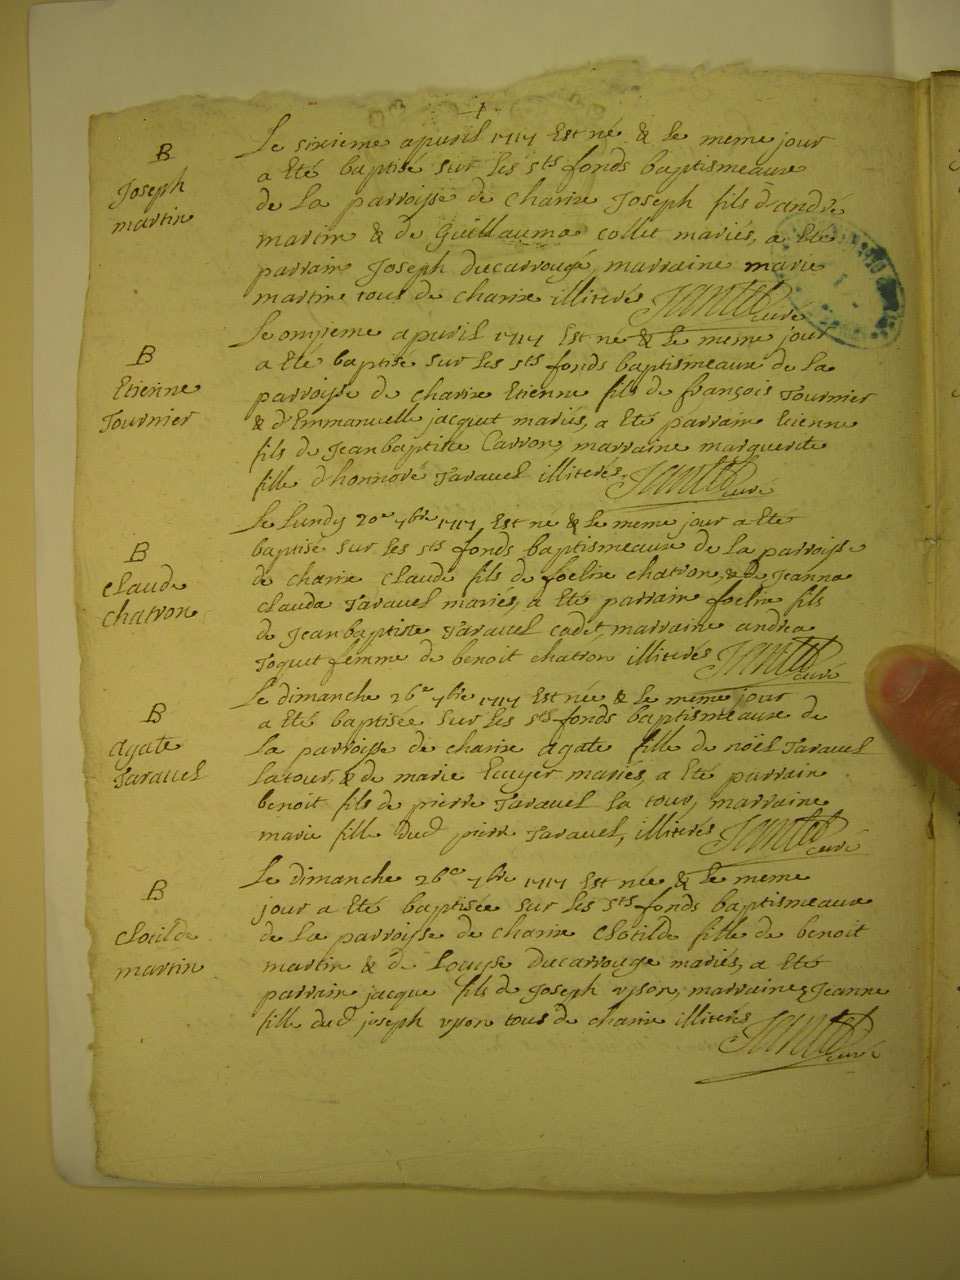 1
B
Joseph
martin
Le sixieme apuril 1717 Est né & Le meme jour
a Eté baptisé sur Les sts fonds baptismeaux
de La parroisse de charix Joseph fils d'andré
martin & de Guillauma collet mariés, a Eté
parrain Joseph ducarrougé, marraine marie
martin tous de charix illiterés curé
B
Etienne
Tournier
Le onzieme apuril 1717 Est né & Le meme jour
a Eté baptisé sur Les sts fonds baptismeaux de La
parroisse de charix Etienne fils de françois Tournier
& d'Emmanuell jacquet mariés, a Eté parrain Etienne
fils de Jeanbaptiste Carron, marraine marguerite
fille d'honnoré Taravel illiterés. curé
B
Claude
chatron
Le Lundy 20e 7bre 1717 Est né & Le meme jour a Eté
baptisé sur Les sts fonds baptismeaux de La parroisse
de charix Claude fils de foelix chatron, & de Jeanna
Clauda Taravel mariés, a Eté parrain foelix fils
de Jeanbaptiste Taravel cadet, marraine andrea
Toquet femme de benoit chatron illiterés curé
B
Agate
Taravel
Le dimanche 26e 7bre 1717 Est née & Le meme jour
a Eté baptisée sur Les sts fonds baptismeaux de
La parroisse de charix Agate fille de noël Taravel
Latour, & de marie Ecuyer mariés, a Eté parrain
benoit fils de pierre Taravel La tour, marraine
marie fille dud pierre Taravel, illiterés curé
B
Clotilde
martin
Le dimanche 26e 7bre 1717 Est née & Le meme
jour a Eté baptisée sur Les sts fonds baptismeaux
de La parroisse de charix Clotilde fille de benoit
martin & de Louyse ducarrouge mariés, a Eté
parrain jacque fils de Joseph vyson, marraine Jeanne
fille dud joseph vyson tous de charix illiterés
curé